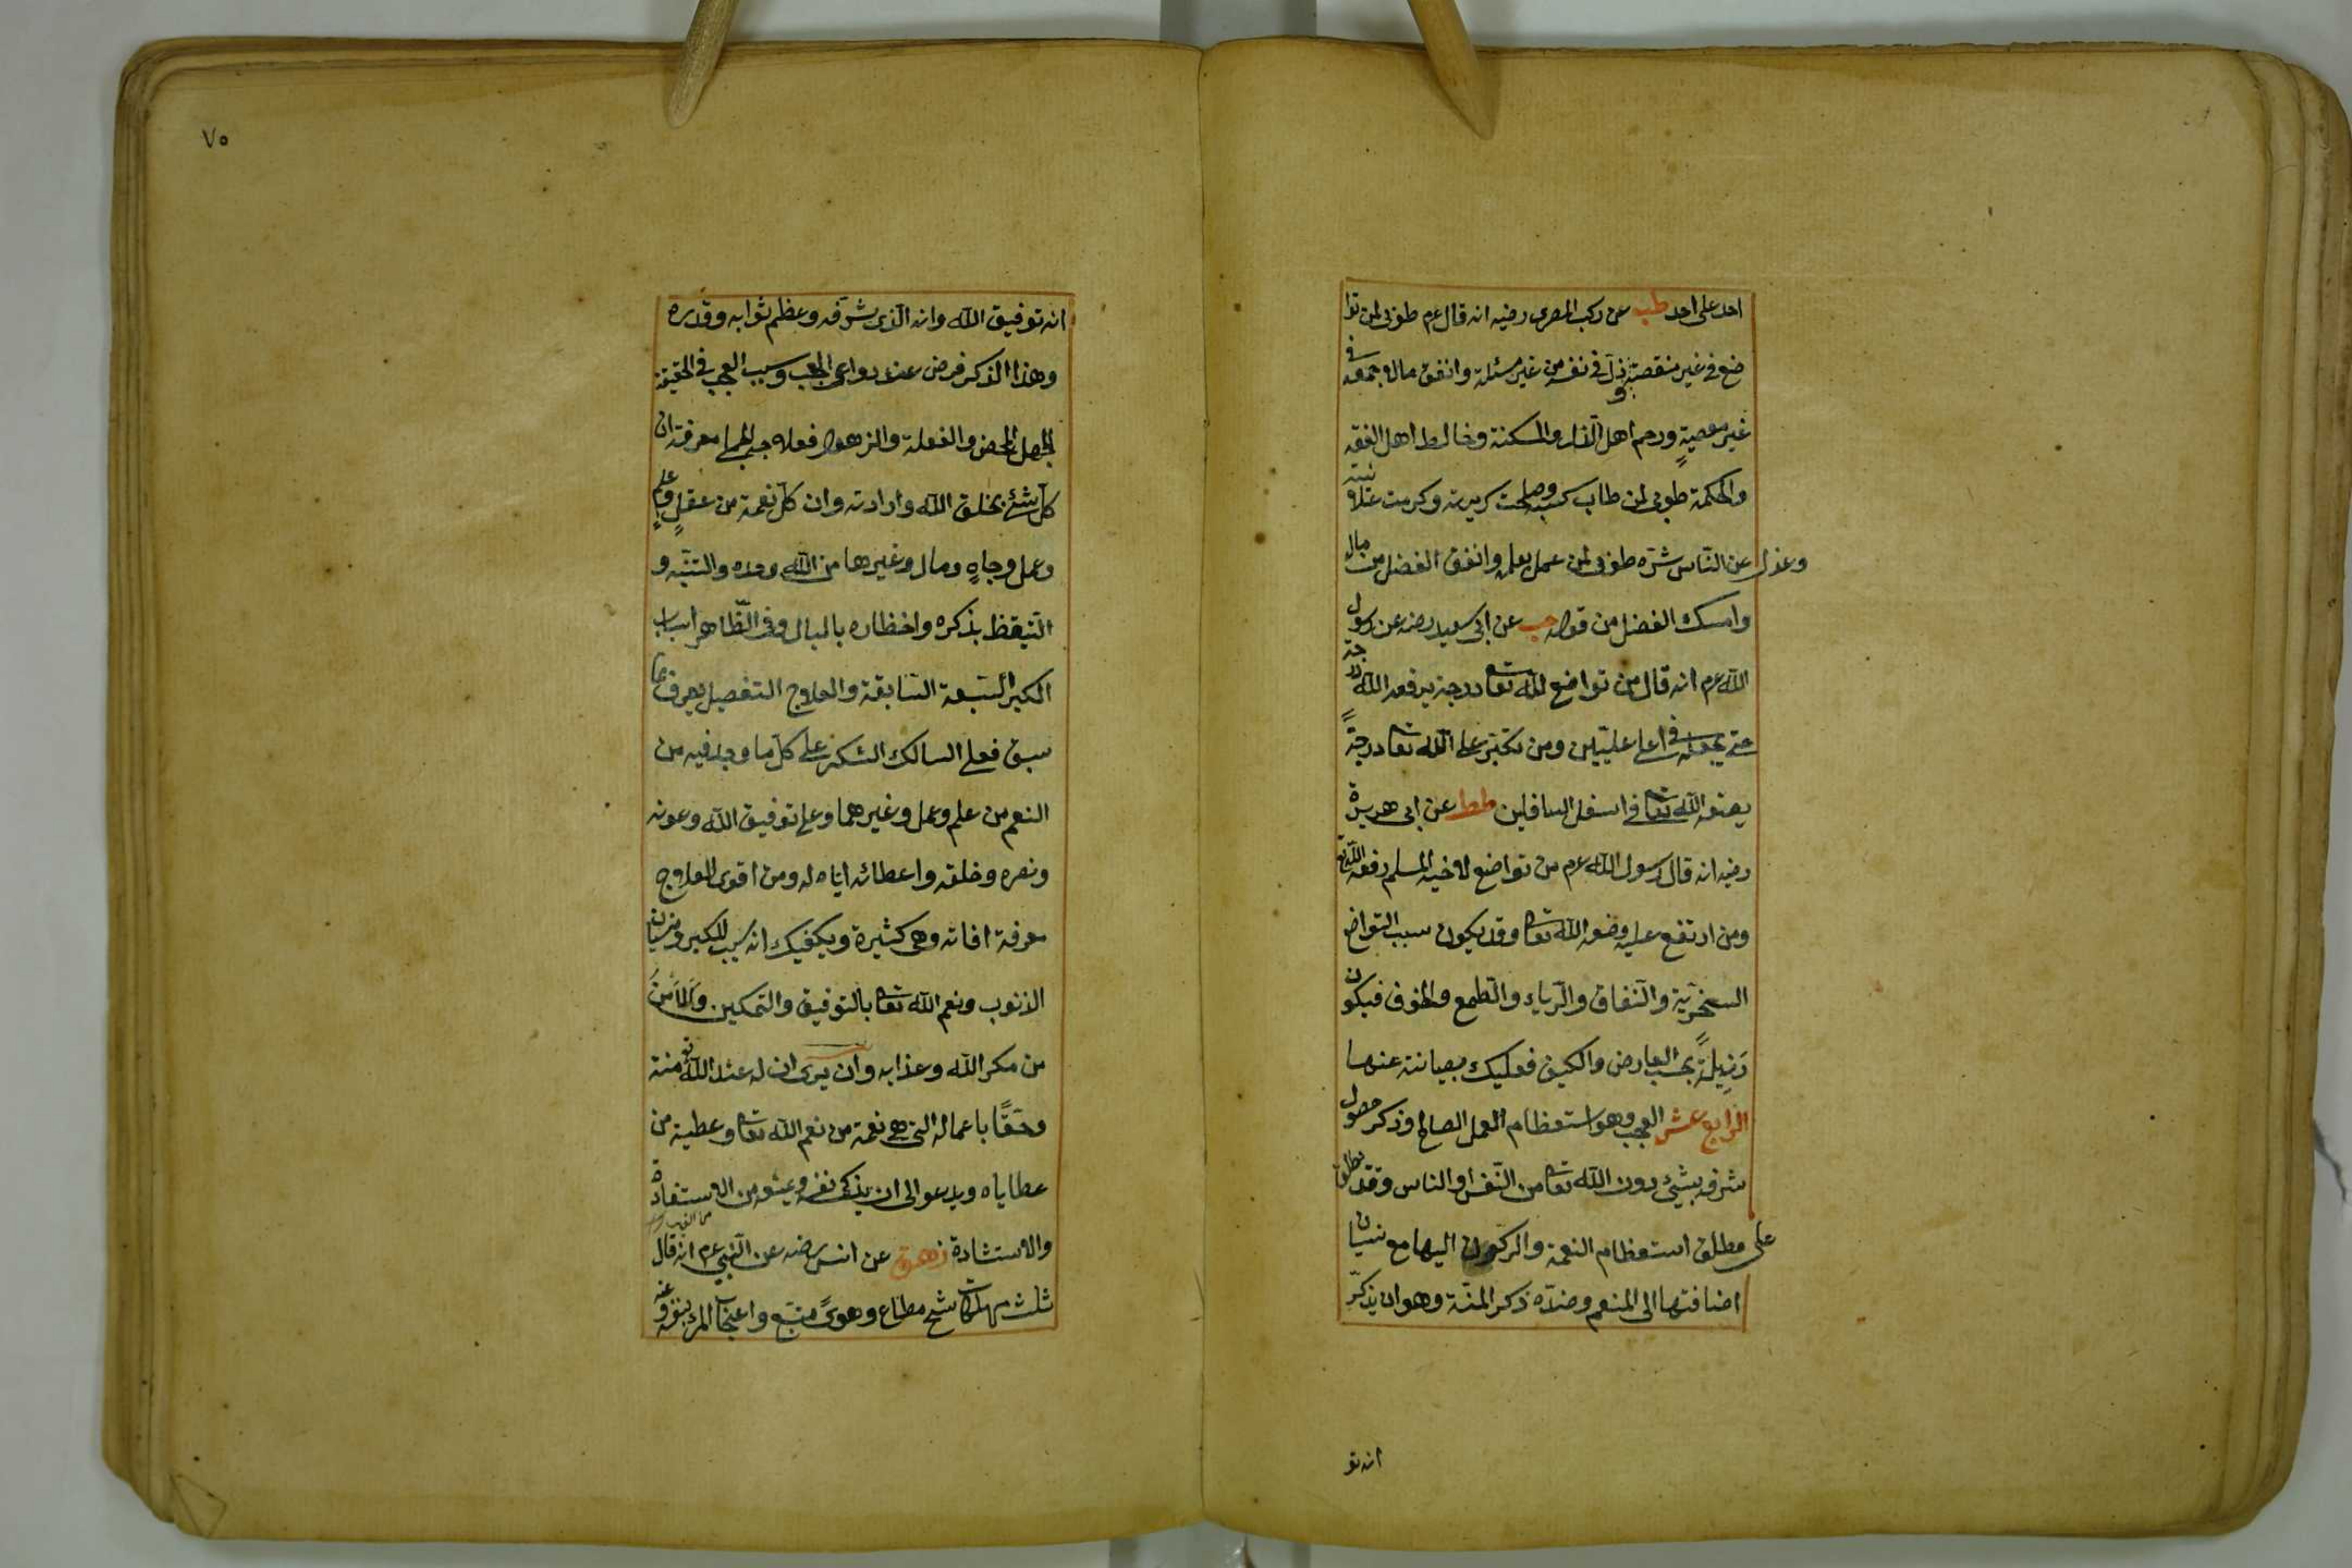 احد على احد طب عن ركب المصرى رضيه انه قال عم طوبى لمن توا
ضع فى غير منقصة وذل فى نفسه من غير مسئلة وانفق مالا جمعه فى
غير معصيةٍ ورحم اهل الذل والمسكنة وخالط اهل الفقه
والحكمة طوبى لمن طاب كسبه وصلحت سريرته وكرمت علانيته
وعزل عن الناس شره طوبى لمن عمل بعلمه وانفق الفضل من ماله
وامسك الفضل من قوله حب عن ابى سعيد رضه عن رسول
الله عم انه قال من تواضع لله تعا درجة يرفعه الله درجة
حتى يجعله فى اعلا عليين ومن تكبر على الله تعا درجةً
يضعه الله تعا فى اسفل السافلين طط عن ابى هريرة
رضيه انه قال رسول الله عم من تواضع لاخيه المسلم رفعه الله تع
ومن ارتفع عليه وضعه الله تعا وقد يكون سبب التواضع
السخرية والنفاق والرياء والطمع والخوف فيكون
رذيلةً بحسب العارض والكيف فعليك بصيانته عنها
الرابع عشر العجب وهو استعظام العمل الصالح وذكر حصول
شرفه بشئ دون الله تعا من النفس او الناس وقد يطلق
على مطلق استعظام النعمة والركون اليها مع نسيان
اضافتها الى المنعم وضده ذكر المنة وهو ان يذكر
انه تو
٧٥
انه توفيق الله وانه الذى شرفه وعظم ثوابه وقدره
وهذا الذكر فرض عند دواعى العجب وسبب العجب فى الحقيقة
الجهل المحض والغفلة والذهول فعلاجه الجملى معرفة ان
كل شئ بخلق الله وارادته وان كل نعمة من عقلٍ وعلمٍ
وعمل وجاهٍ ومال وغيرها من الله وحده والتنبه و
التيقظ بذكره واخطاره بالبال وفى الظاهر اسباب
الكبر السبعة السابقة والعلاج التفصيلى يعرف مما
سبق فعلى السالك الشكر على كل ما وجد فيه من
النعم من علم وعمل وغيرهما وعلى توفيق الله وعونه
ونصره وخلقه واعطائه اياه له ومن اقوى العلاج
معرفة افاته وهى كثيرة ويكفيك انه سبب للكبر ونسيان
الذنوب ونعم الله تعا بالتوفيق والتمكين والأمن
من مكر الله وعذابه وان يرى ان له عند الله تع منة
وحقًا باعماله التى هى نعمة من نعم الله تعا وعطية من
عطاياه ويدعو الى ان يزكى نفسه ويمنعه من الاستفادة
والاستشادة زهق عن انس رضه عن النبى عم انه قال
ثلث مهلكات شح مطاع وهوىً متبع واعجاب المرء بنفسه وعنه